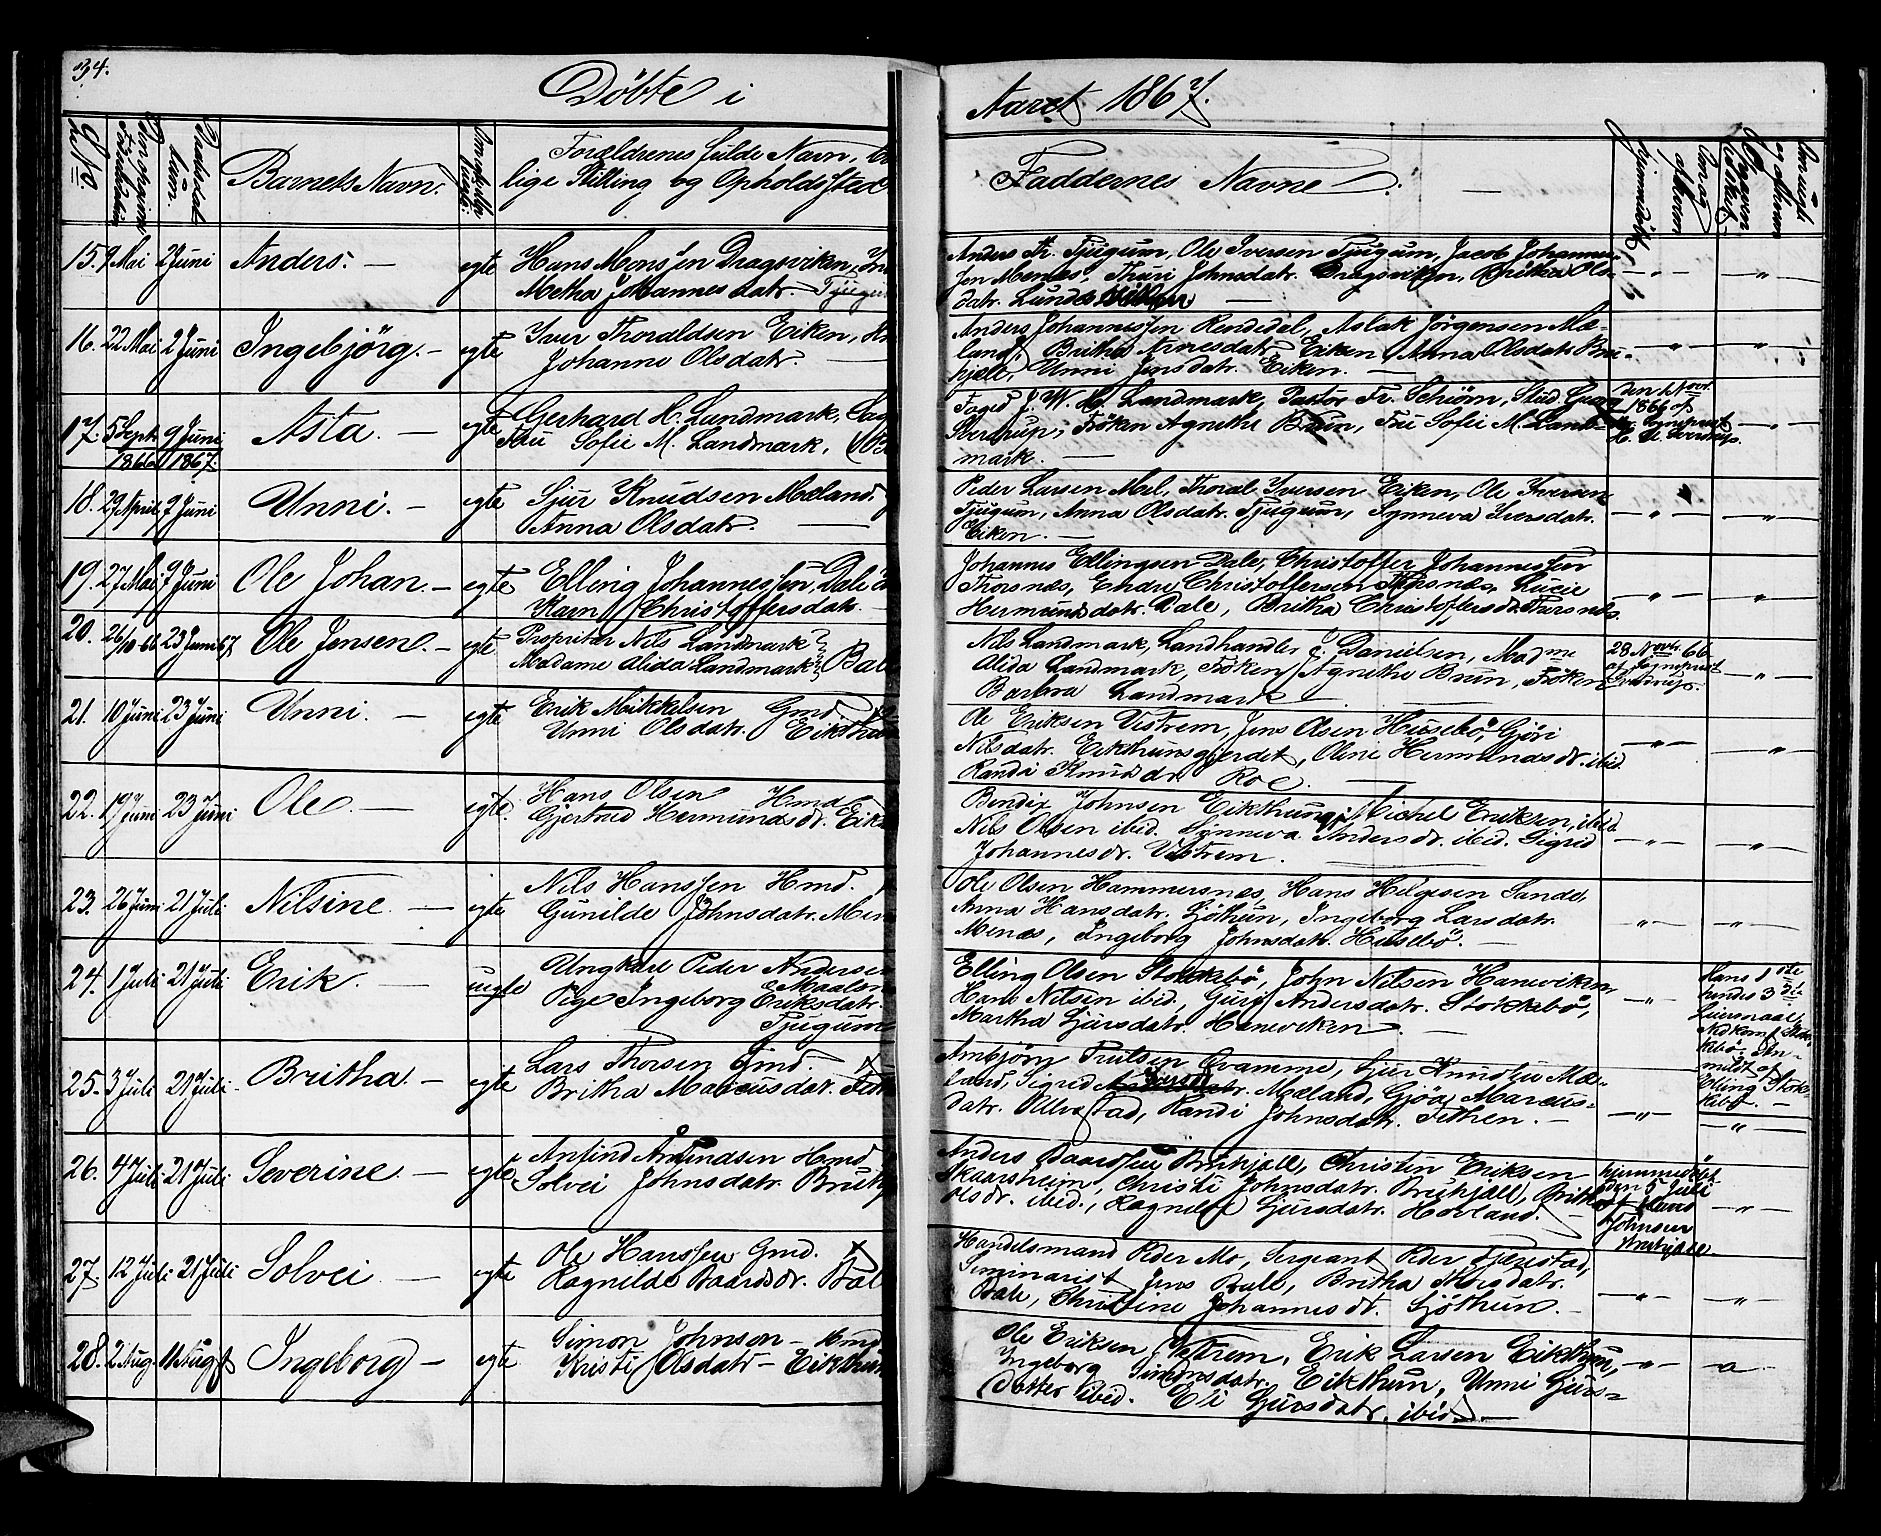 34.
Döbte i
Aaret 1867.
Lb. No.
Barnets Navn.
Forældrenes fulde Navn,
lige Stilling og Opholdssted
Faddernes Navne.
15. 9 Mai 2 Juni Anders. — egte
Hans Monssen Dragsviken,
Metha Johannesdatr.
Anders Fr. Tjugum, Ole Iversen Tjugum, Jacob Johannes-
sen Menes, Thuri Johnsdatr. Dragsviken, Britha Ols-
datr. Lunde
16. 22 Mai 2 Juni Ingebjörg. — egte
Iver Thoraldsen Eiken,
Johanne Olsdatr. —
Anders Johannessen Rendedal, Aslak Jörgensen Mæ-
land, Britha Iversdatr. Eiken, Anna Olsdatr. Bru-
hjell, Unni Jensdatr. Eiken. —
17. 5 Sept. 1866 9 Juni 1867. Asta. — egte
Gerhard H. Landmark,
Fru Sofie M. Landmark,
Foged J. W. H. Landmark, Pastor Fr. Schiörn, Stud. Georg
Sverdrup, Fröken Agnethe Brun, Fru Sofie M. Land-
mark. —
den 1 Novr.
1866 af
Hr. Sogneprest
H. U. Sverdrup.
18. 29 April 9 Juni Unni. — egte
Sjur Knudsen Mæland.
Anna Olsdatr. —
Peder Larsen Mel, Thoral Iversen Eiken, Ole Iversen
Tjugum, Anna Olsdatr. Tjugum, Synneva Iversdatr.
Eiken. —
19. 27 Mai 9 Juni Ole Johan. — egte
Elling Johannessen Dale
Karn Christoffersdatr. —
Johannes Ellingsen Dale, Christoffer Johannessen
Thorsnæs, Endre Christoffersen Thorsnæs, Lucie
Hermundsdatr. Dale, Britha Christoffersdr. Thorsnes.
20. 26/10-66 23 Juni 67 Ole Jensen. — egte
Propritær Nils Landmark
Madame Alida Landmark Bal
Nils Landmark, Landhandler J. Danielsen, Madme
Alida Landmark, Fröken Agnethe Brun, Fröken
Barbra Landmark
28 Novbr. 66
af Sogneprest
Sverdrup.
21. 10 Juni 23 Juni Unni. — egte
Erik Mikkelsen Gmd.
Unni Olsdatr. Eikthun
Ole Eriksen Vistrem, Jens Olsen Husebö, Gjöri
Nilsdatr. Eikthunsgjerdet, Oline Hermundsdr. ibid.
Randi Knudsdr. Roe.
22. 19 Juni 23 Juni Ole. — egte.
Hans Olsen Hmd.
Gjertrud Hermundsdr. Eik
Bendix Johnsen Eikthun, Michel Eriksen, ibid
Nils Olsen ibid. Synneva Andersdr. ibid. Sigrid
Johannesdr. Vistrem.
23. 26 Juni 21 Juli Nilsine. — egte
Nils Hanssen Hmd.
Gunilde Johnsdatr. Men
Ole Olsen Hammersnæs, Hans Helgesen Sande,
Anna Hansdatr. Sjöthun, Ingeborg Larsdatr.
Menæs, Ingeborg Johnsdatr. Husebö. —
24. 1 Juli 21 Juli Erik. — uegte
Ungkarl Peder Andersen
Pige Ingeborg Eriksdatr.
Tjugum
Elling Olsen Stokkebö, John Nilsen Haneviken,
Hans Nilsen ibid., Guro Andersdatr. Stokkebö,
Martha Sjursdatr. Haneviken. —
Hans 1ste
hendes 3die
Leiermaal.
Nedkom Stok-
kebö. An-
mldt af
Elling Stok-
kebö. —
25. 3 Juli 21 Juli. Britha. — egte
Lars Thorsen Gmd.
Britha Marcusdatr.
Ambjörn Truitsen Qvamme, Sjur Knudsen Mæ-
land, Sigrid Mæland, Gjöa Marcus-
datr. Ulvestad, Randi Johnsdatr. Fethen. —
26. 4 Juli 21 Juli Severine. — egte.
Anfind Amundsen Hmd
Solvei Johnsdatr. Bruhj
Anders Baardsen Bruhjell, Christen Eriksen
Skaarsheim, Christi Johnsdatr. Bruhjell, Britha
Olsdr. ibid., Ragnilde Sjursdatr. Hovland. —
hjemmedöbt
den 5 Juli
af Hans
Johnsen
Bruhjell
27. 12 Juli 21 Juli Solvei. — egte
Ole Hanssen Gmd.
Ragnilde Baardsdr. Bal
Handelsmand Peder Mo, Sergeant Peder Fjærestad,
Seminarist Jens Bale, Britha Thorsdatr.
Bale, Christine Johannesdt. Sjöthun. —
28. 2 Aug. 11 Aug. Ingeborg — egte
Simon Johnsen — Hmd
Kristi Olsdatr — Eikthun
Ole Eriksen Vestrem, Erik Larsen Eikthun,
Ingeborg Simonsdatr. Eikthun, Unni Sjurs-
datter ibid. Eli Sjursdatr. ibid. —